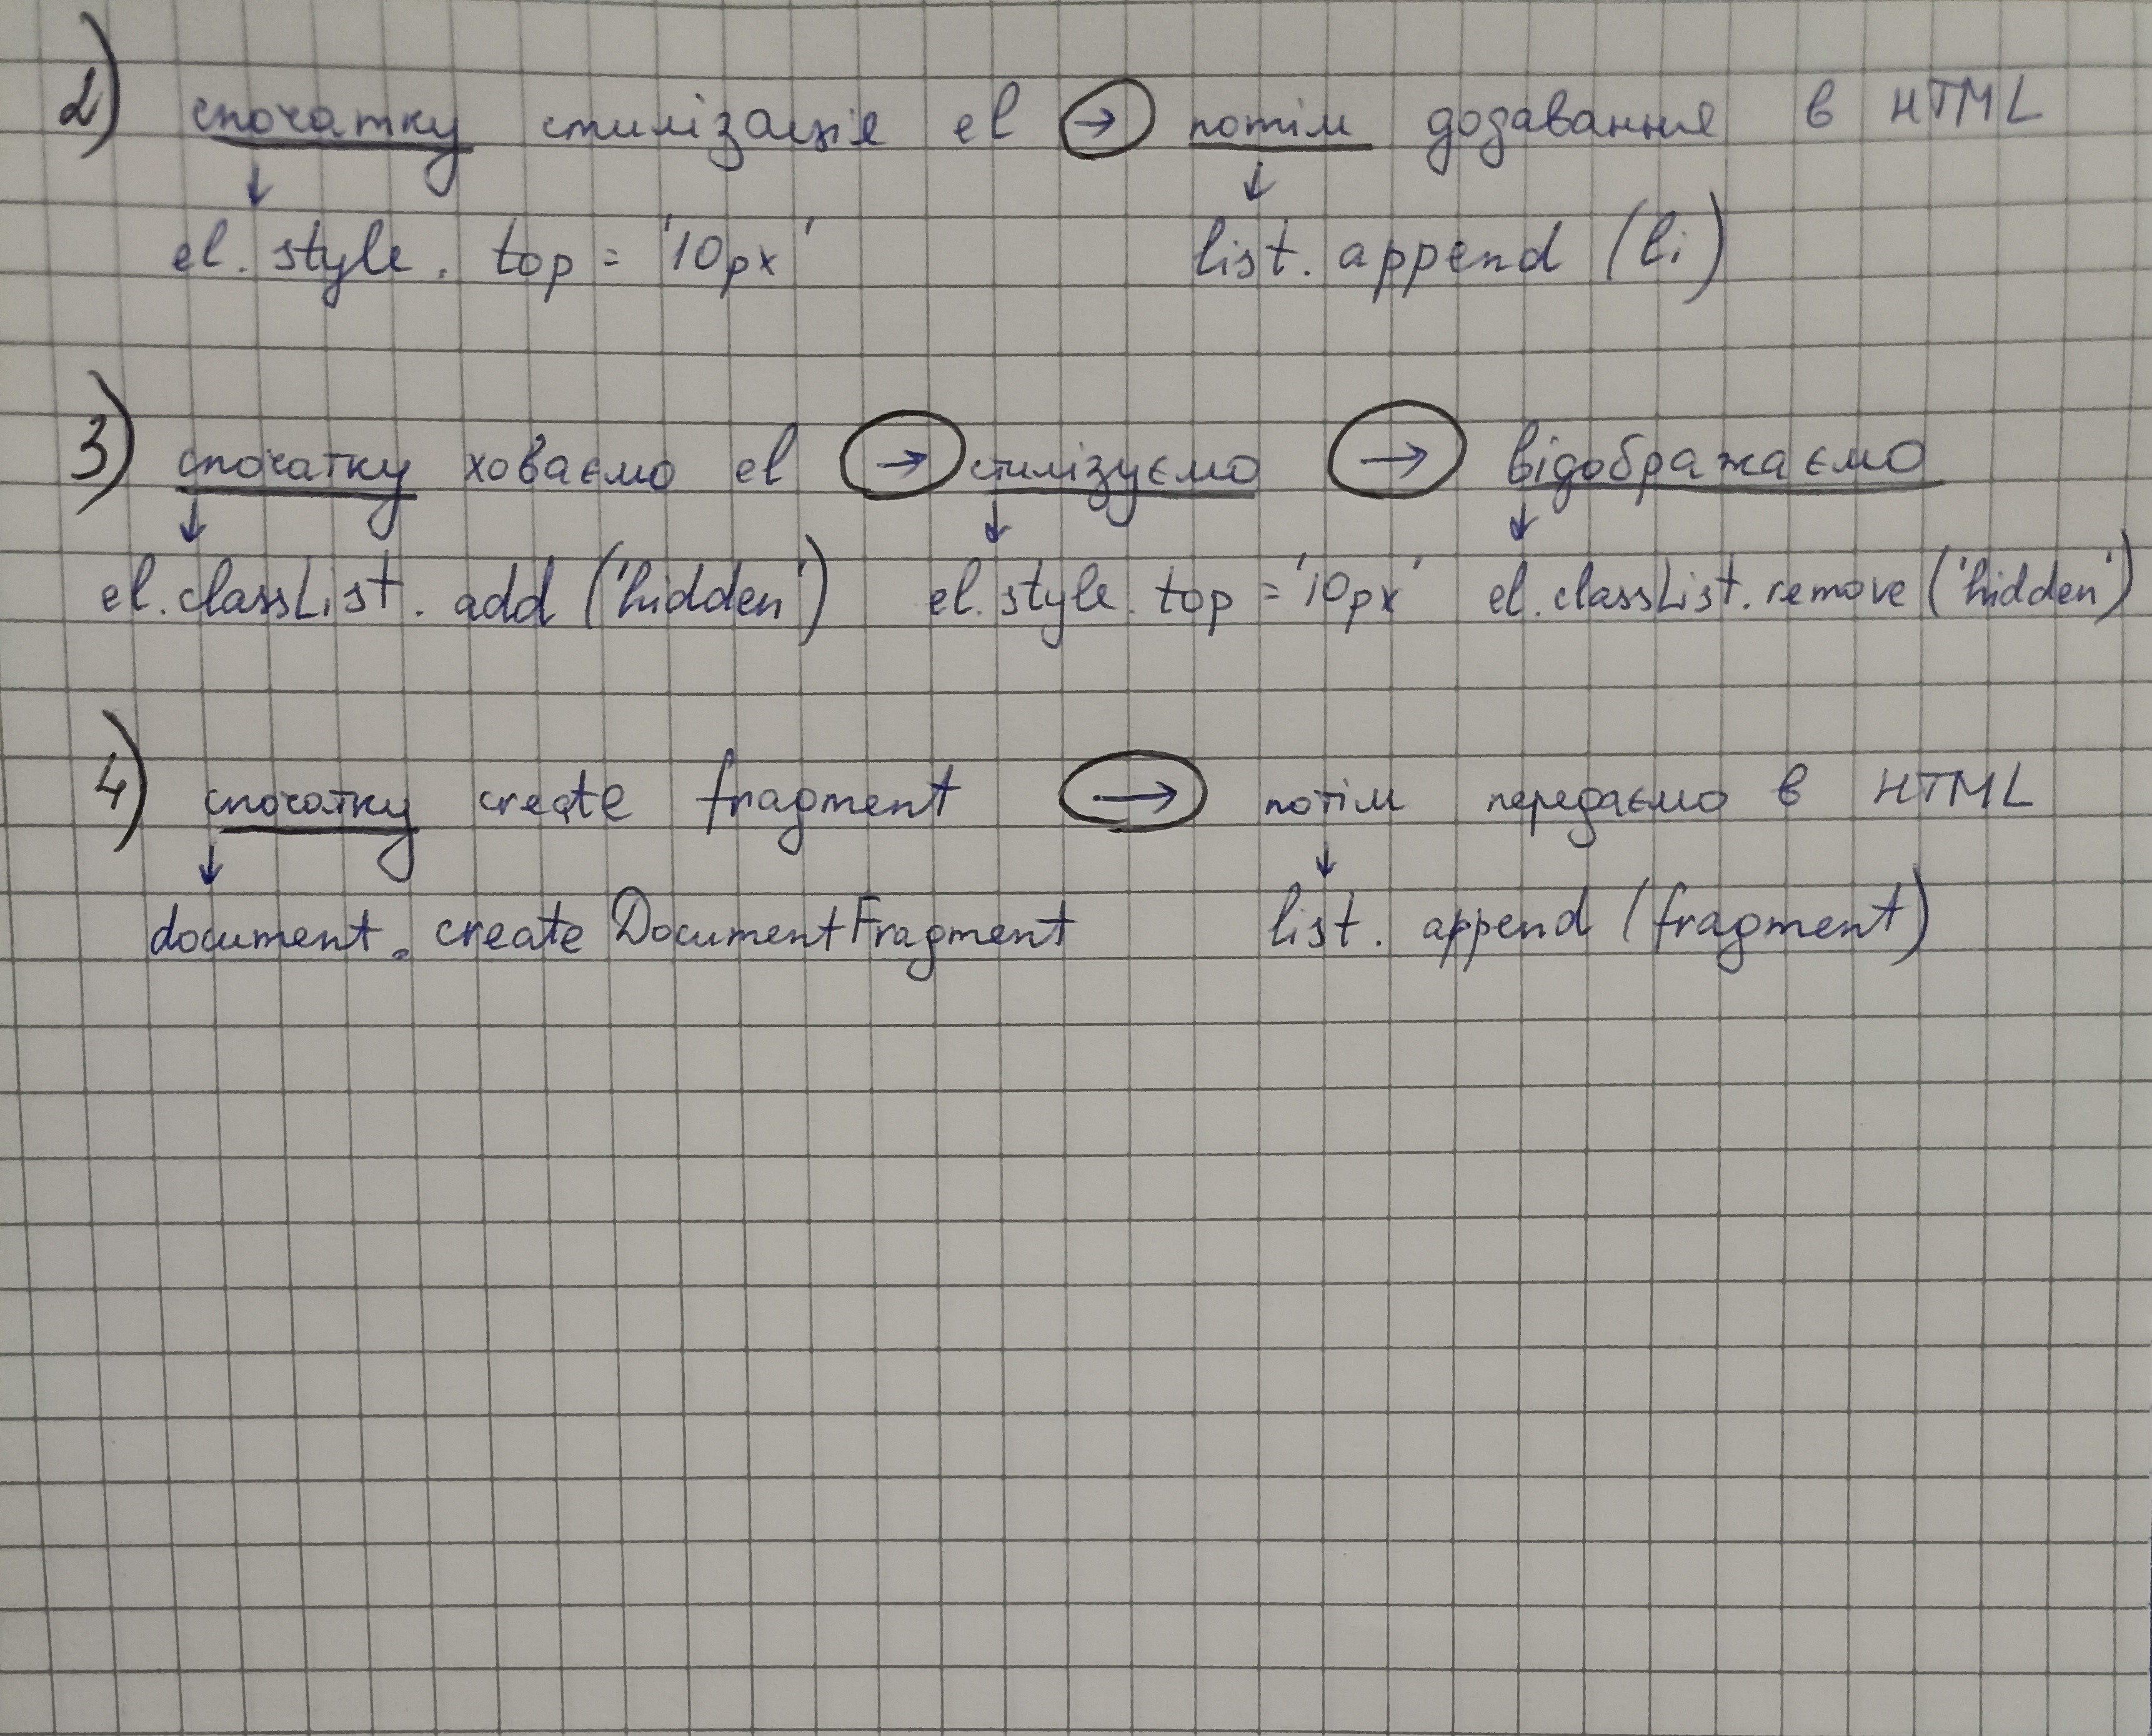 2) спочатку стилізація el → потім додавання в HTML
↓ ↓
el. style. top = '10px' list. append (li)
3) спочатку ховаємо el → стилізуємо → відображаємо
↓ ↓ ↓
el. classList. add ('hidden') el. style. top = '10px' el. classList. remove ('hidden')
4) спочатку create fragment → потім передаємо в HTML
↓ ↓
document. createDocumentFragment list. append (fragment)